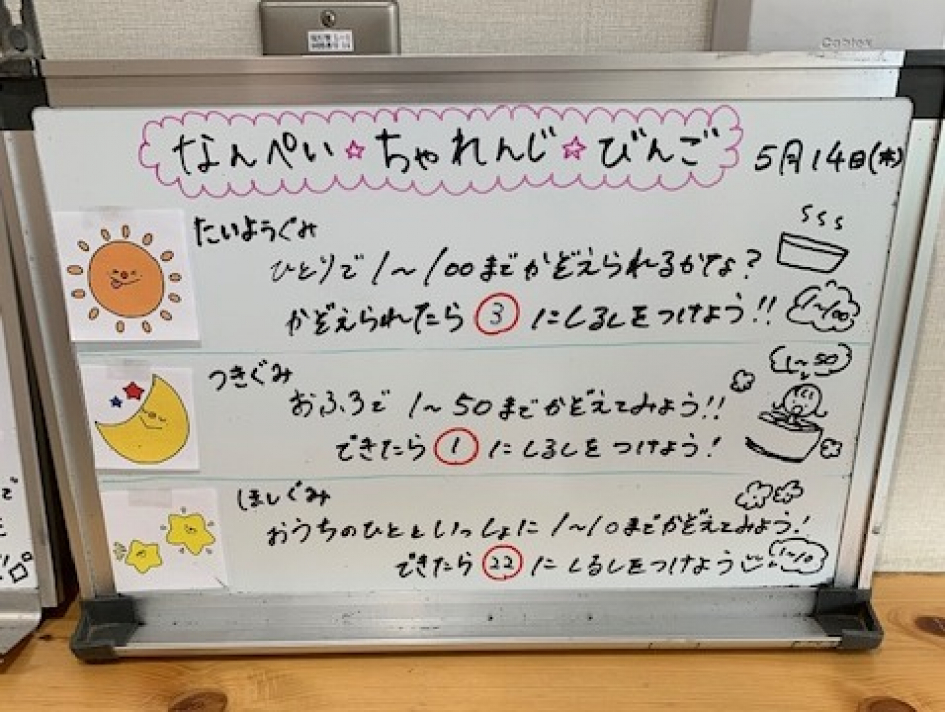 なんぺい☆ちゃれんじ☆びんご
5月14日(木)
たいようぐみ
ひとりで1〜100までかぞえられるかなょ?
かぞえられたら③にしるしをつけよう!!
1〜100
つきぐみ
1〜50
おふろで1〜50までかぞえてみよう!!
できたら①にしるしをつけよう!
ほしぐみ
おうちのひとといっしょに1〜10までかぞえてみよう!
できたら㉒にしるしをつけよう
1〜10